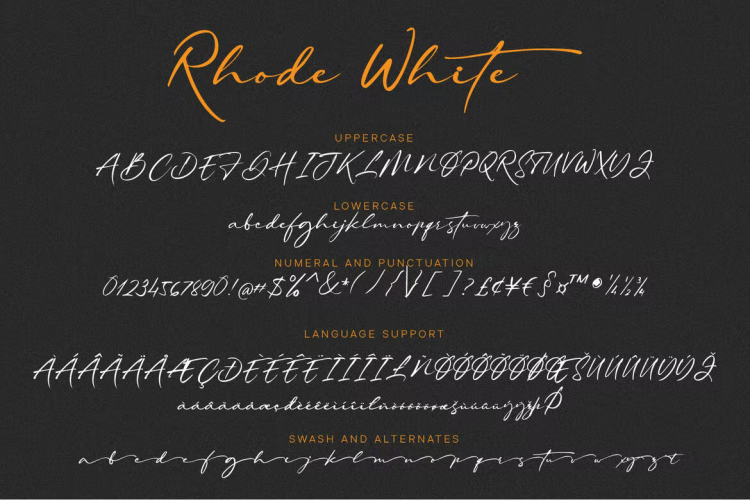 Rhode White
UPPERCASE
ABCDEFGHIJKLMNOPQRSTUVWXYZ
LOWERCASE
abcdefghijklmnopqrstuvwxyz
NUMERAL AND PUNCTUATION
01234567890!@#$%^&*()/{\}[]?£¢¥€§¤™•¼½¾
LANGUAGE SUPPORT
SWASH AND ALTERNATES
abcdefghijklmnopqrstuvwxyzt